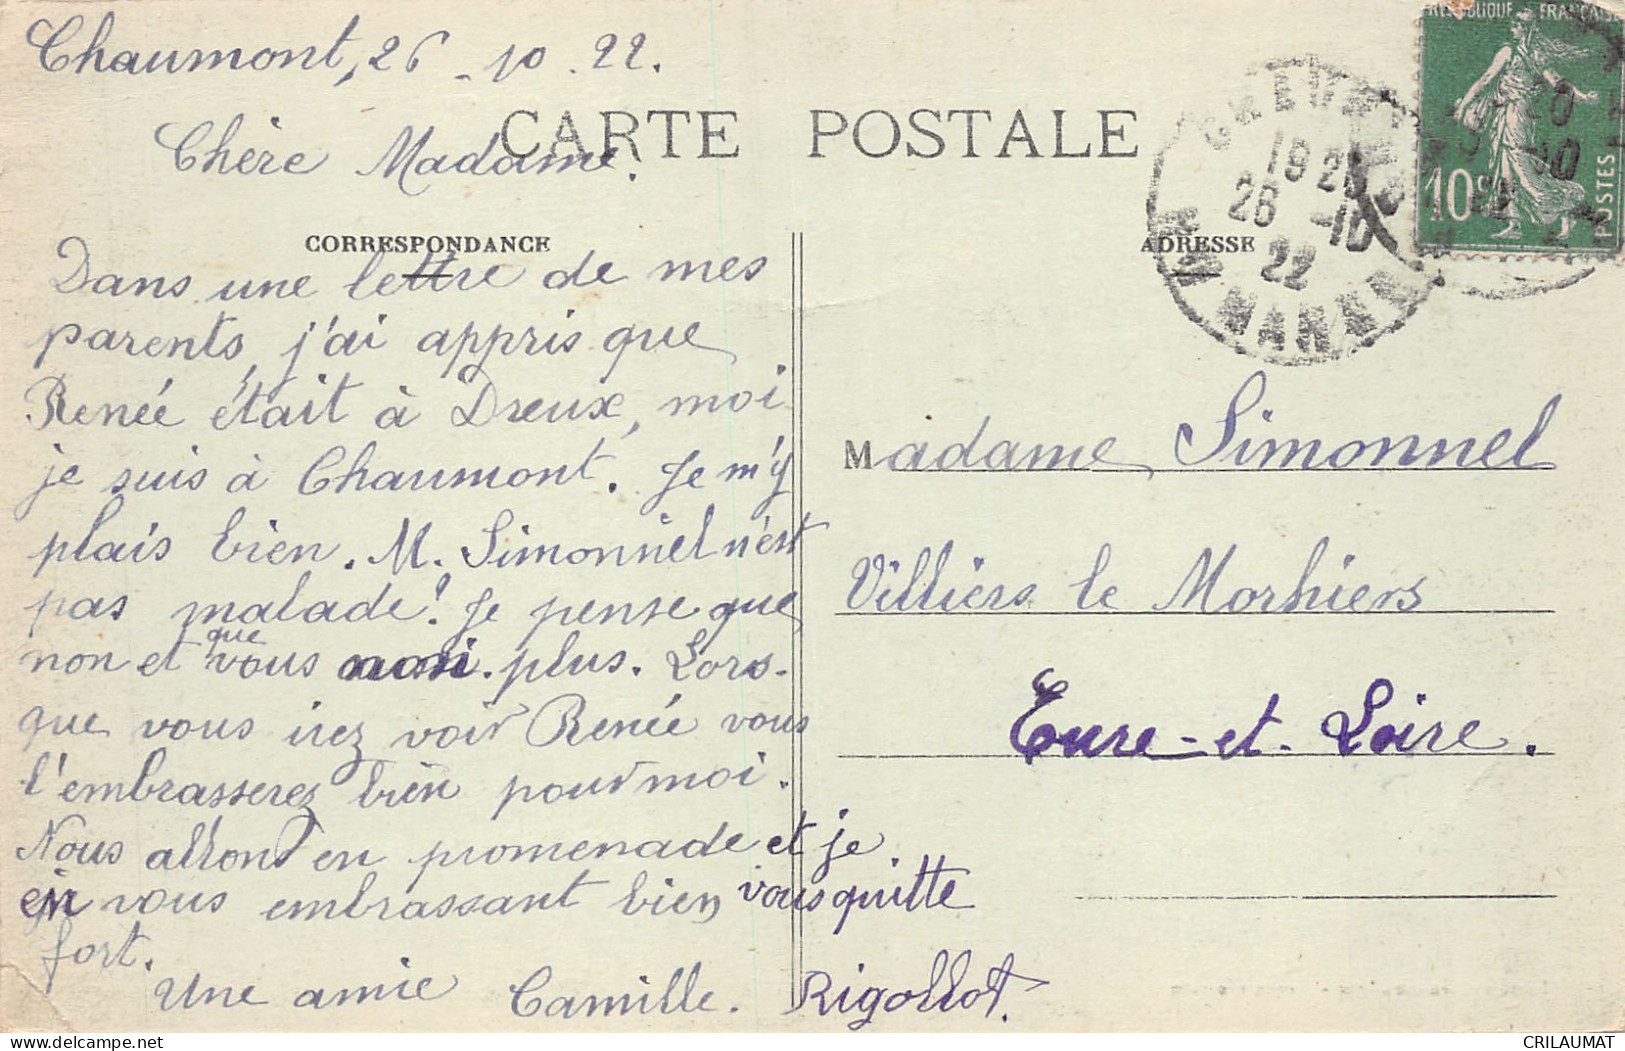 Chaumont, 26 - 10 . 22.
CARTE POSTALE
Chère Madame.
CORRESPONDANCE
Dans une lettre de mes
parents, j'ai appris que
Renée était à Dreux, moi
je suis à Chaumont. Je m'y
plais bien. M. Simonnel n'est
pas malade! Je pense que
non et que vous non plus. Lors-
que vous irez voir Renée vous
l'embrasserez bien pour moi.
Nous allons en promenade et je
vous quitte
en vous embrassant bien
fort.
Une amie Camille. Rigollot.
RÉPUBLIQUE FRANÇAISE
10c
POSTES
19 20
26 -10
22
MARNE
ADRESSE
Madame Simonnel
Villiers le Morhiers
Eure-et-Loire.
CRILAUMAT